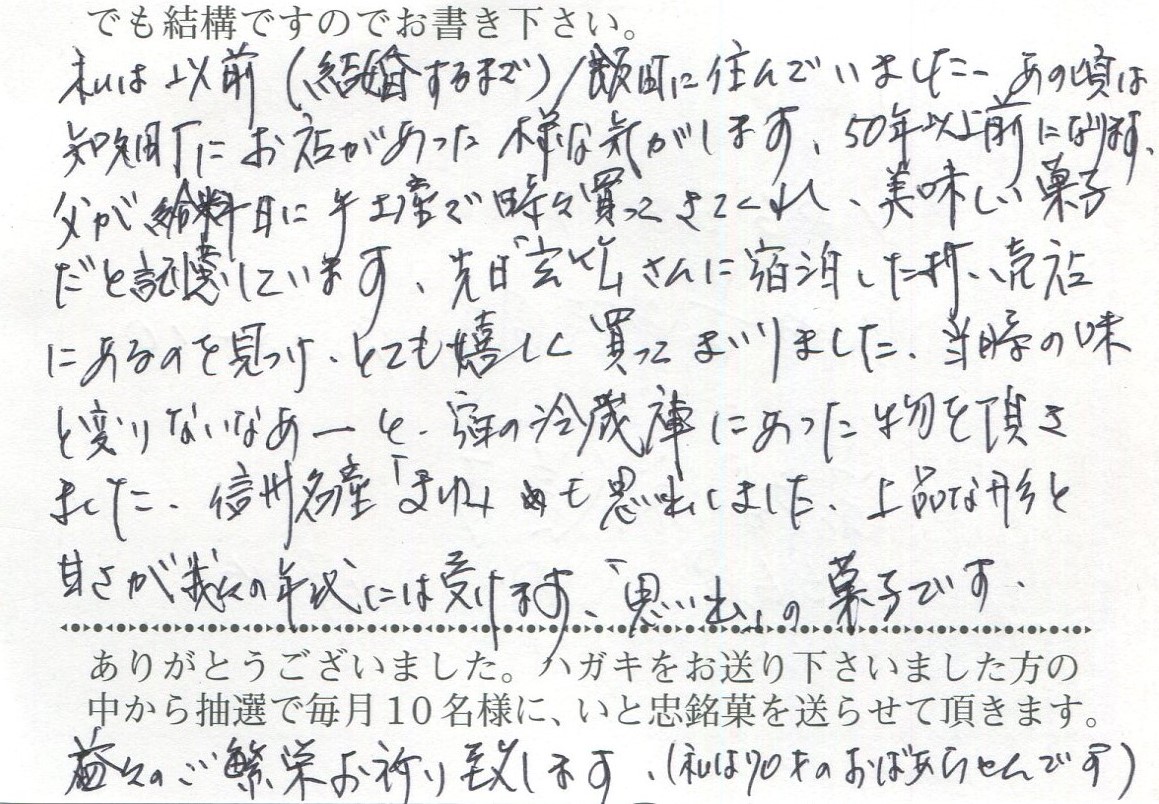 でも結構ですのでお書き下さい。
私は以前(結婚するまで)飯田に住んでいましたーあの頃は
知久町にお店があった様な気がします、50年以上前になります、
父が給料日に手土産で時々買ってきてくれ、美味しい菓子
だと記憶しています、先日「玄竹」さんに宿泊した折、売店
にあるのを見つけ、とても嬉しく買ってまいりました、当時の味
と変りないなあーと、宿の冷蔵庫にあった物を頂き
ました、信州名産「まゆ」も思い出しました、上品な形と
甘さが我々の年代には受けます、「思い出」の菓子です、
ありがとうございました。ハガキをお送り下さいました方の
中から抽選で毎月10名様に、いと忠銘菓を送らせて頂きます。
益々のご繁栄お祈り致します、(私は70才のおばあちゃんです)